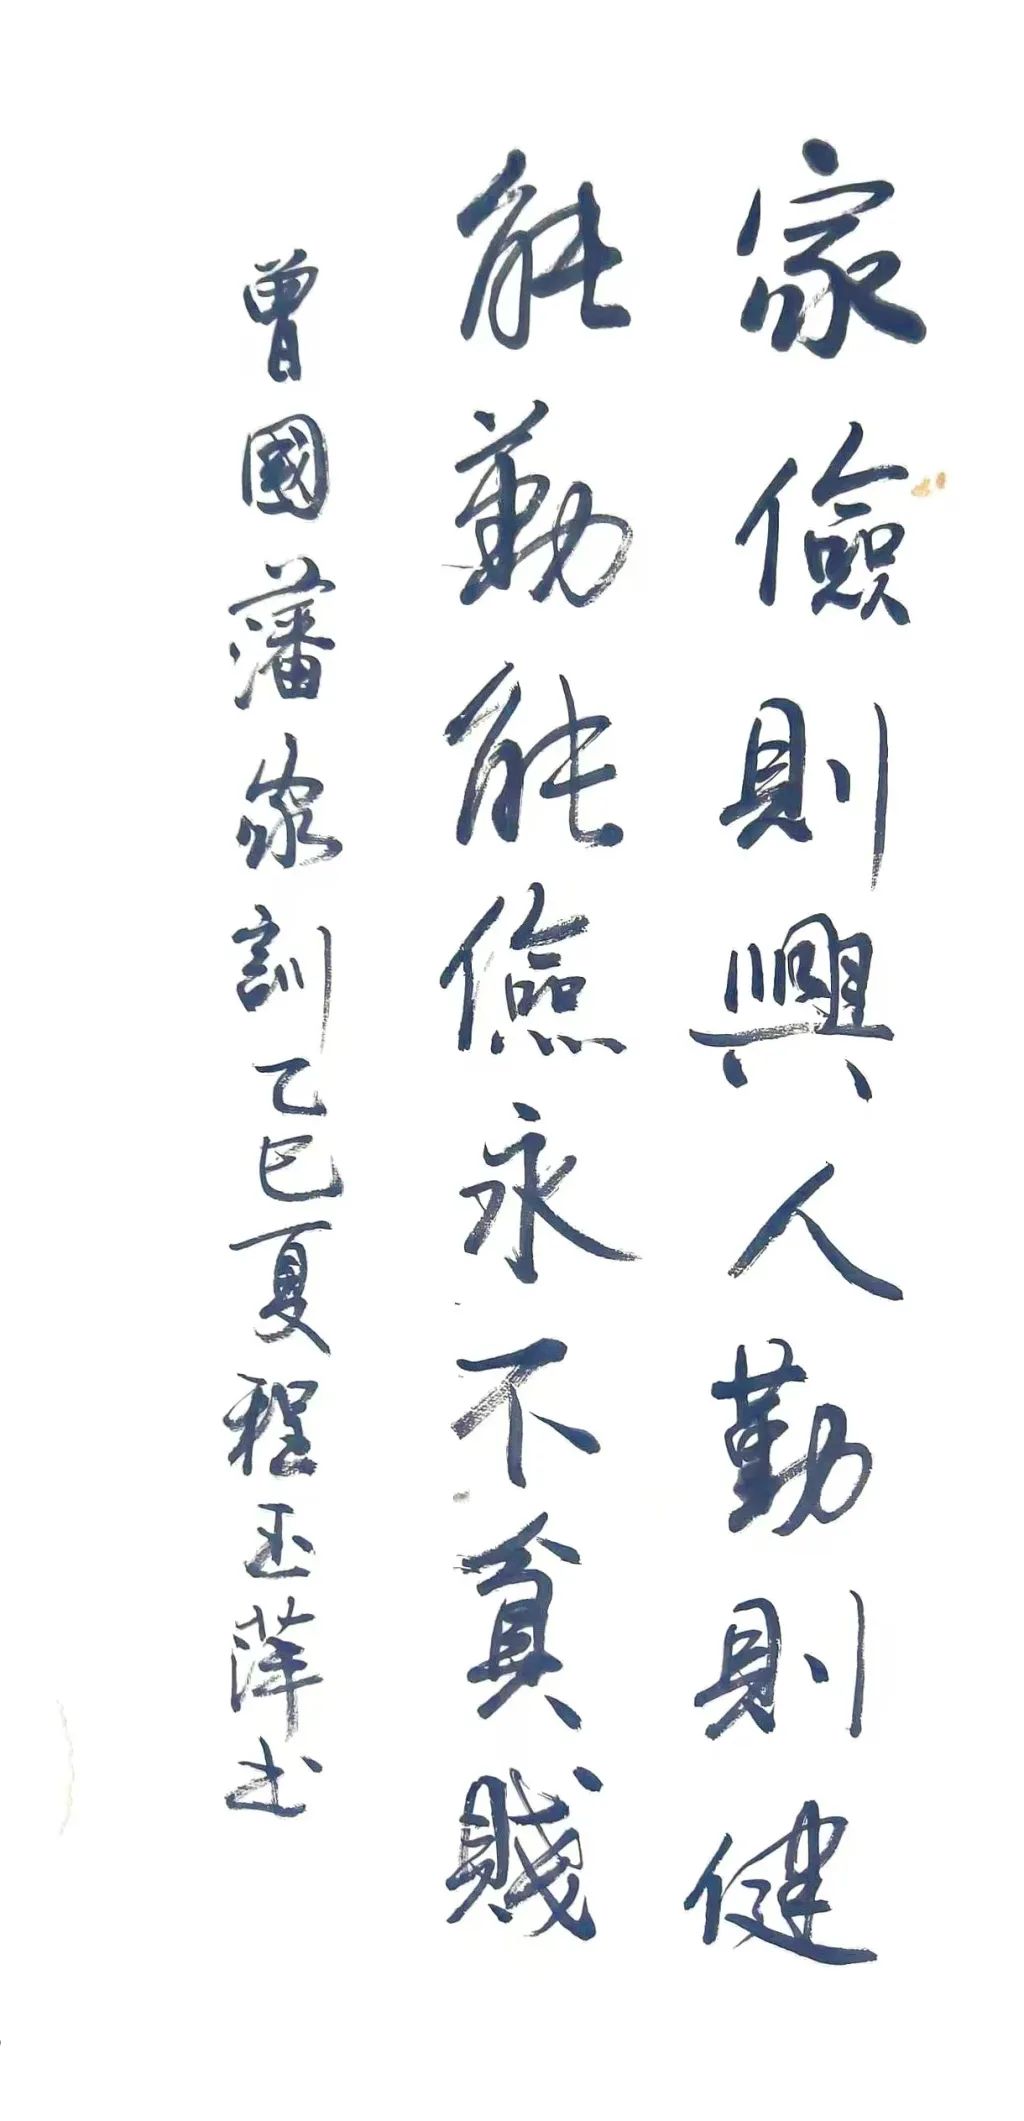 家儉則興人勤則健
能勤能儉永不貧賤
曾國藩家訓乙巳夏程玉萍书